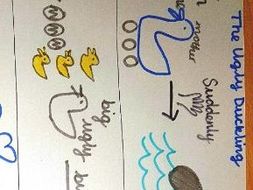 The Ugly Duckling
mother
Suddenly
big
ugly